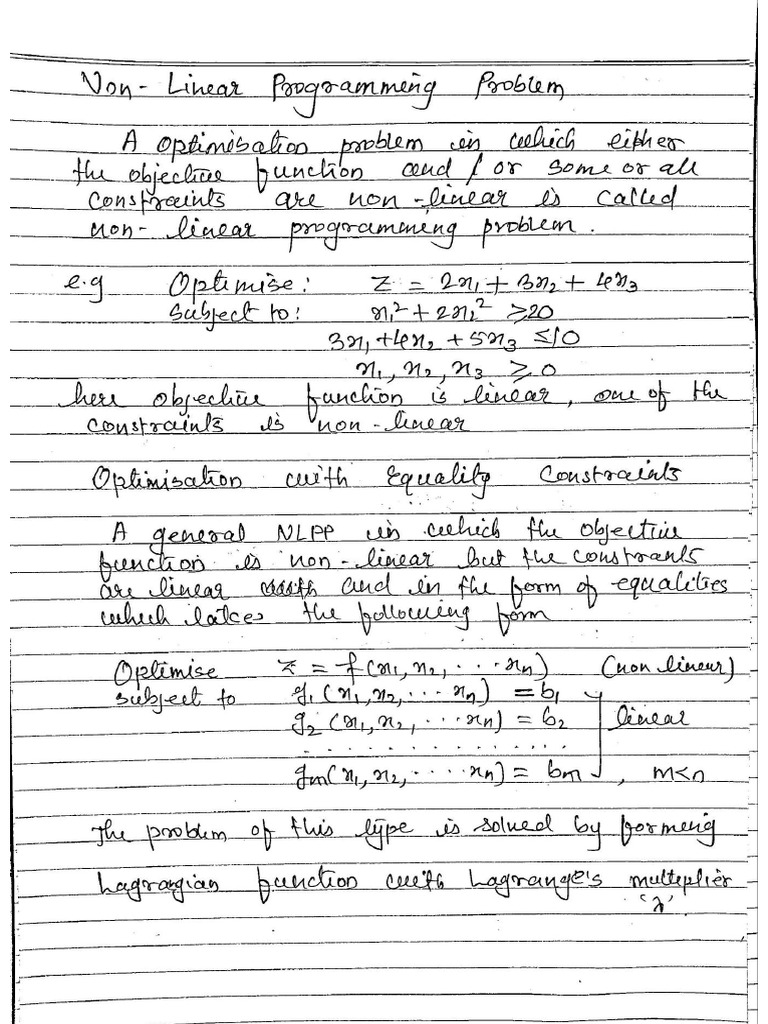 Non-Linear Programming Problem
A optimisation problem in which either
the objective function and / or some or all
constraints are non-linear is called
non-linear programming problem.
e.g Optimise: z = 2x₁ + 3x₂ + 4x₃
Subject to: x₁² + 2x₁² ≥20
3x₁ + 4x₂ + 5x₃ ≤10
x₁, x₂, x₃ ≥ 0
here objective function is linear, one of the
constraints is non-linear
Optimisation with Equality Constraints
A general NLPP in which the objective
function is non-linear but the constrants
are linear and in the form of equalities
which takes the following form
Optimise z = f(x₁, x₂, ... xn) (non linear)
subject to g₁(x₁, x₂, ... xn) = b₁
g₂(x₁, x₂, ... xn) = b₂ linear
. . . . . . . . . . . . . . .
gm(x₁, x₂, .... xn) = bm , m<n
The problem of this type is solved by forming
Lagrangian function with Lagrange's multiplier
'λ'.